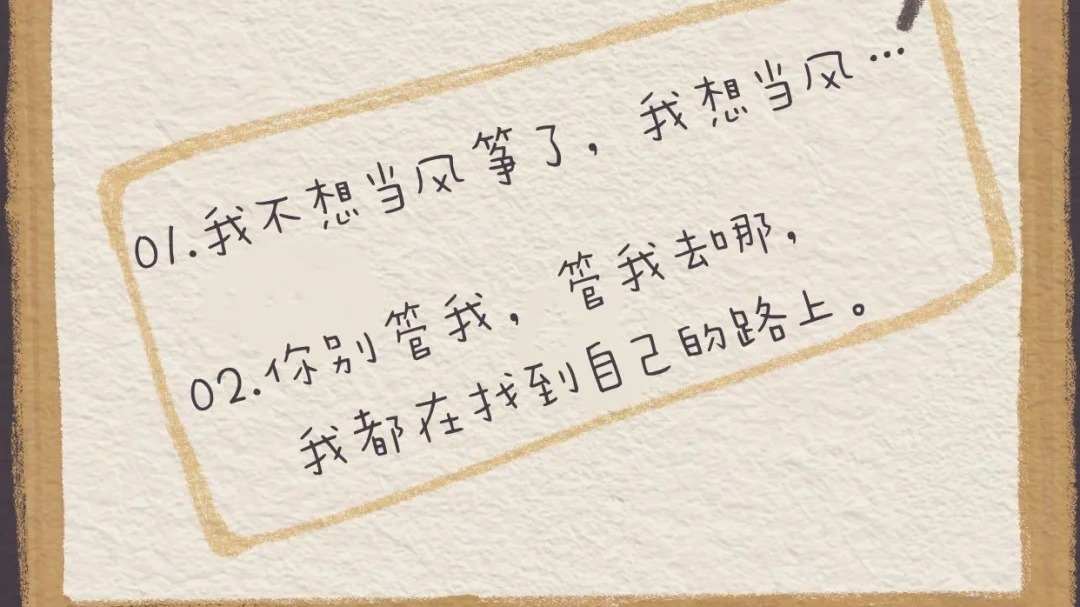 01.我不想当风筝了，我想当风…
02.你别管我，管我去哪，
我都在找到自己的路上。